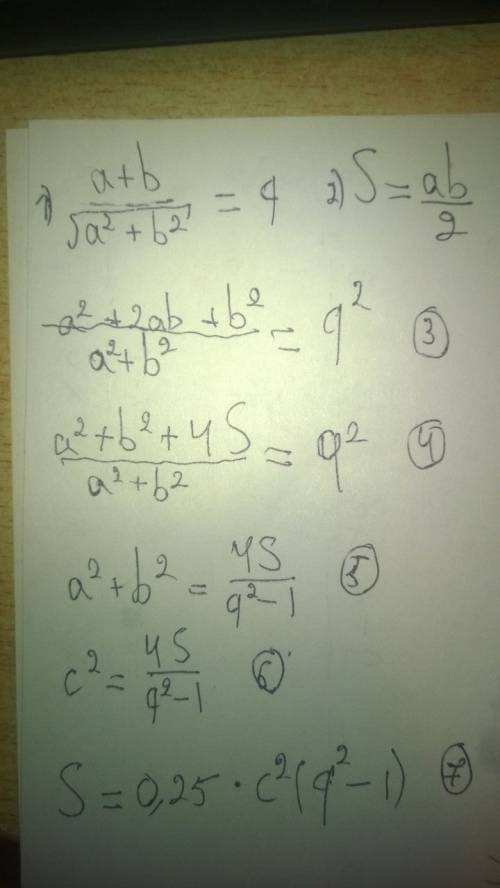 1) (a+b)/√(a²+b²) = q 2) S = ab/2
(a²+2ab+b²)/(a²+b²) = q² ③
(a²+b²+4S)/(a²+b²) = q² ④
a²+b² = 4S/(q²-1) ⑤
c² = 4S/(q²-1) ⑥
S = 0,25 · c²(q²-1) ⑦